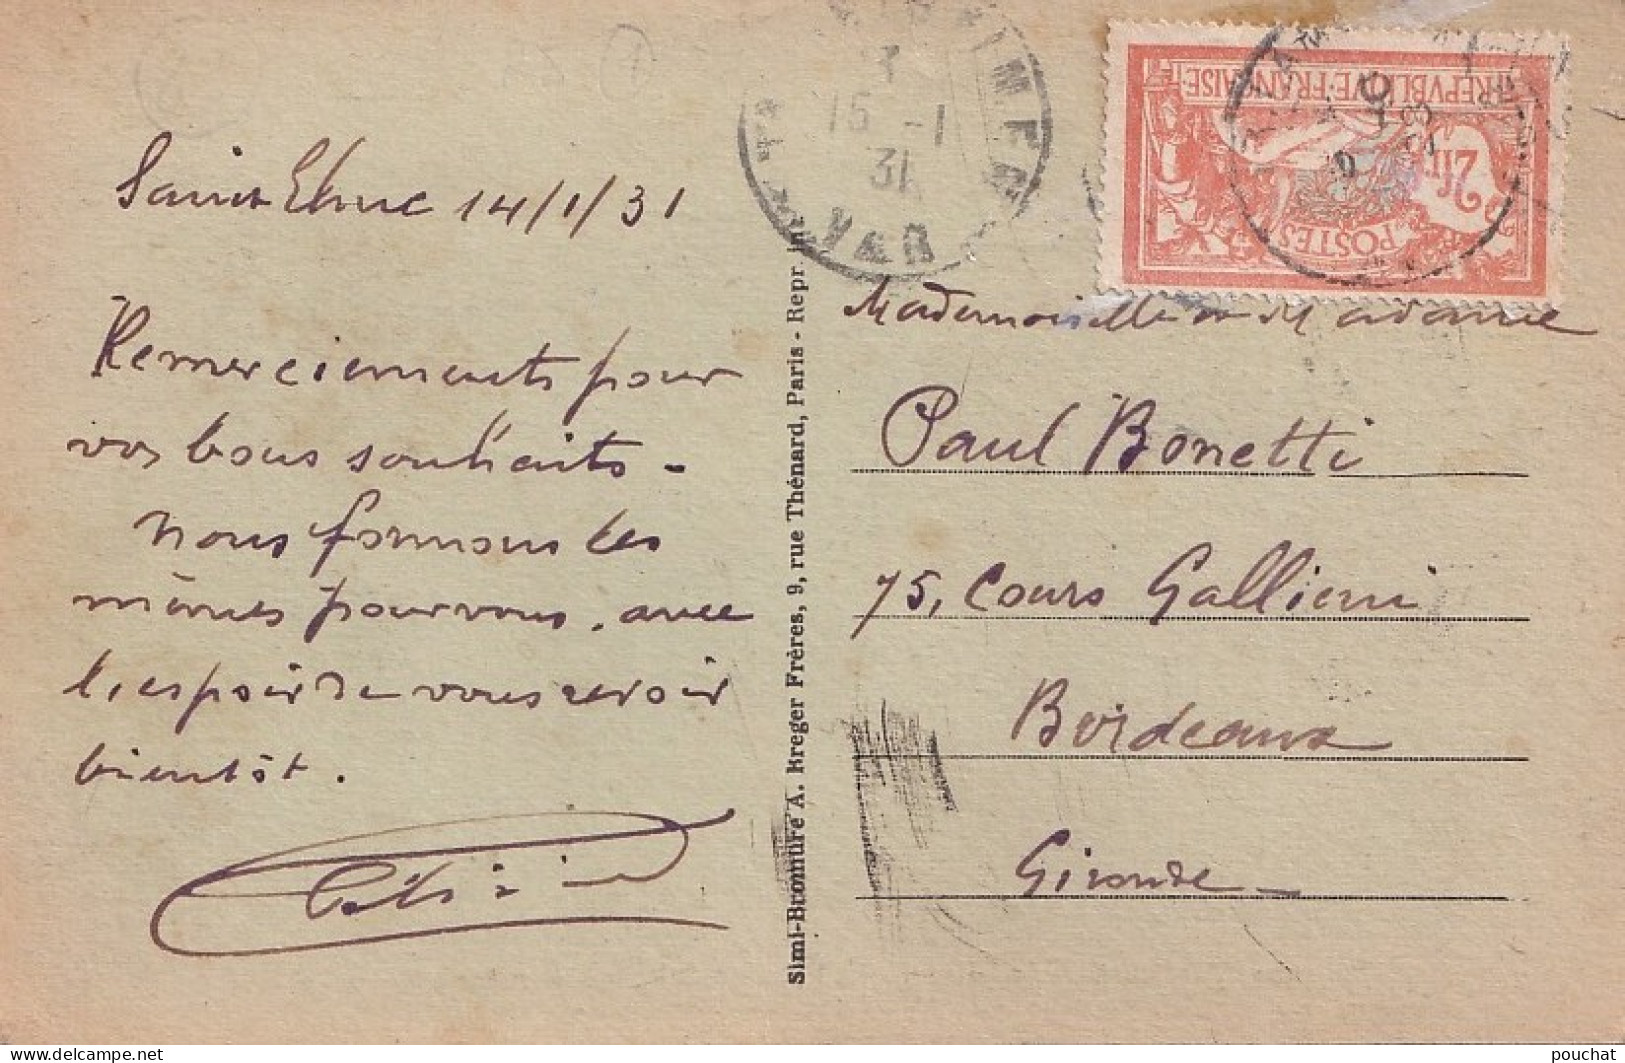 14/1/31
Remerciements pour
vos bons souhaits -
Nous formons les
mêmes pour vous, avec
l'espoir de vous revoir
bientôt.
15 -1
31
VAR
REPVBLIQVE FRANÇAISE
2fr
POSTES
Simi-Bromure A. Breger Frères, 9, rue Thénard, Paris - Repr. int.
Mademoiselle
Paul Bonetti
75, Cours Gallieni
Bordeaux
Gironde -
pouchat